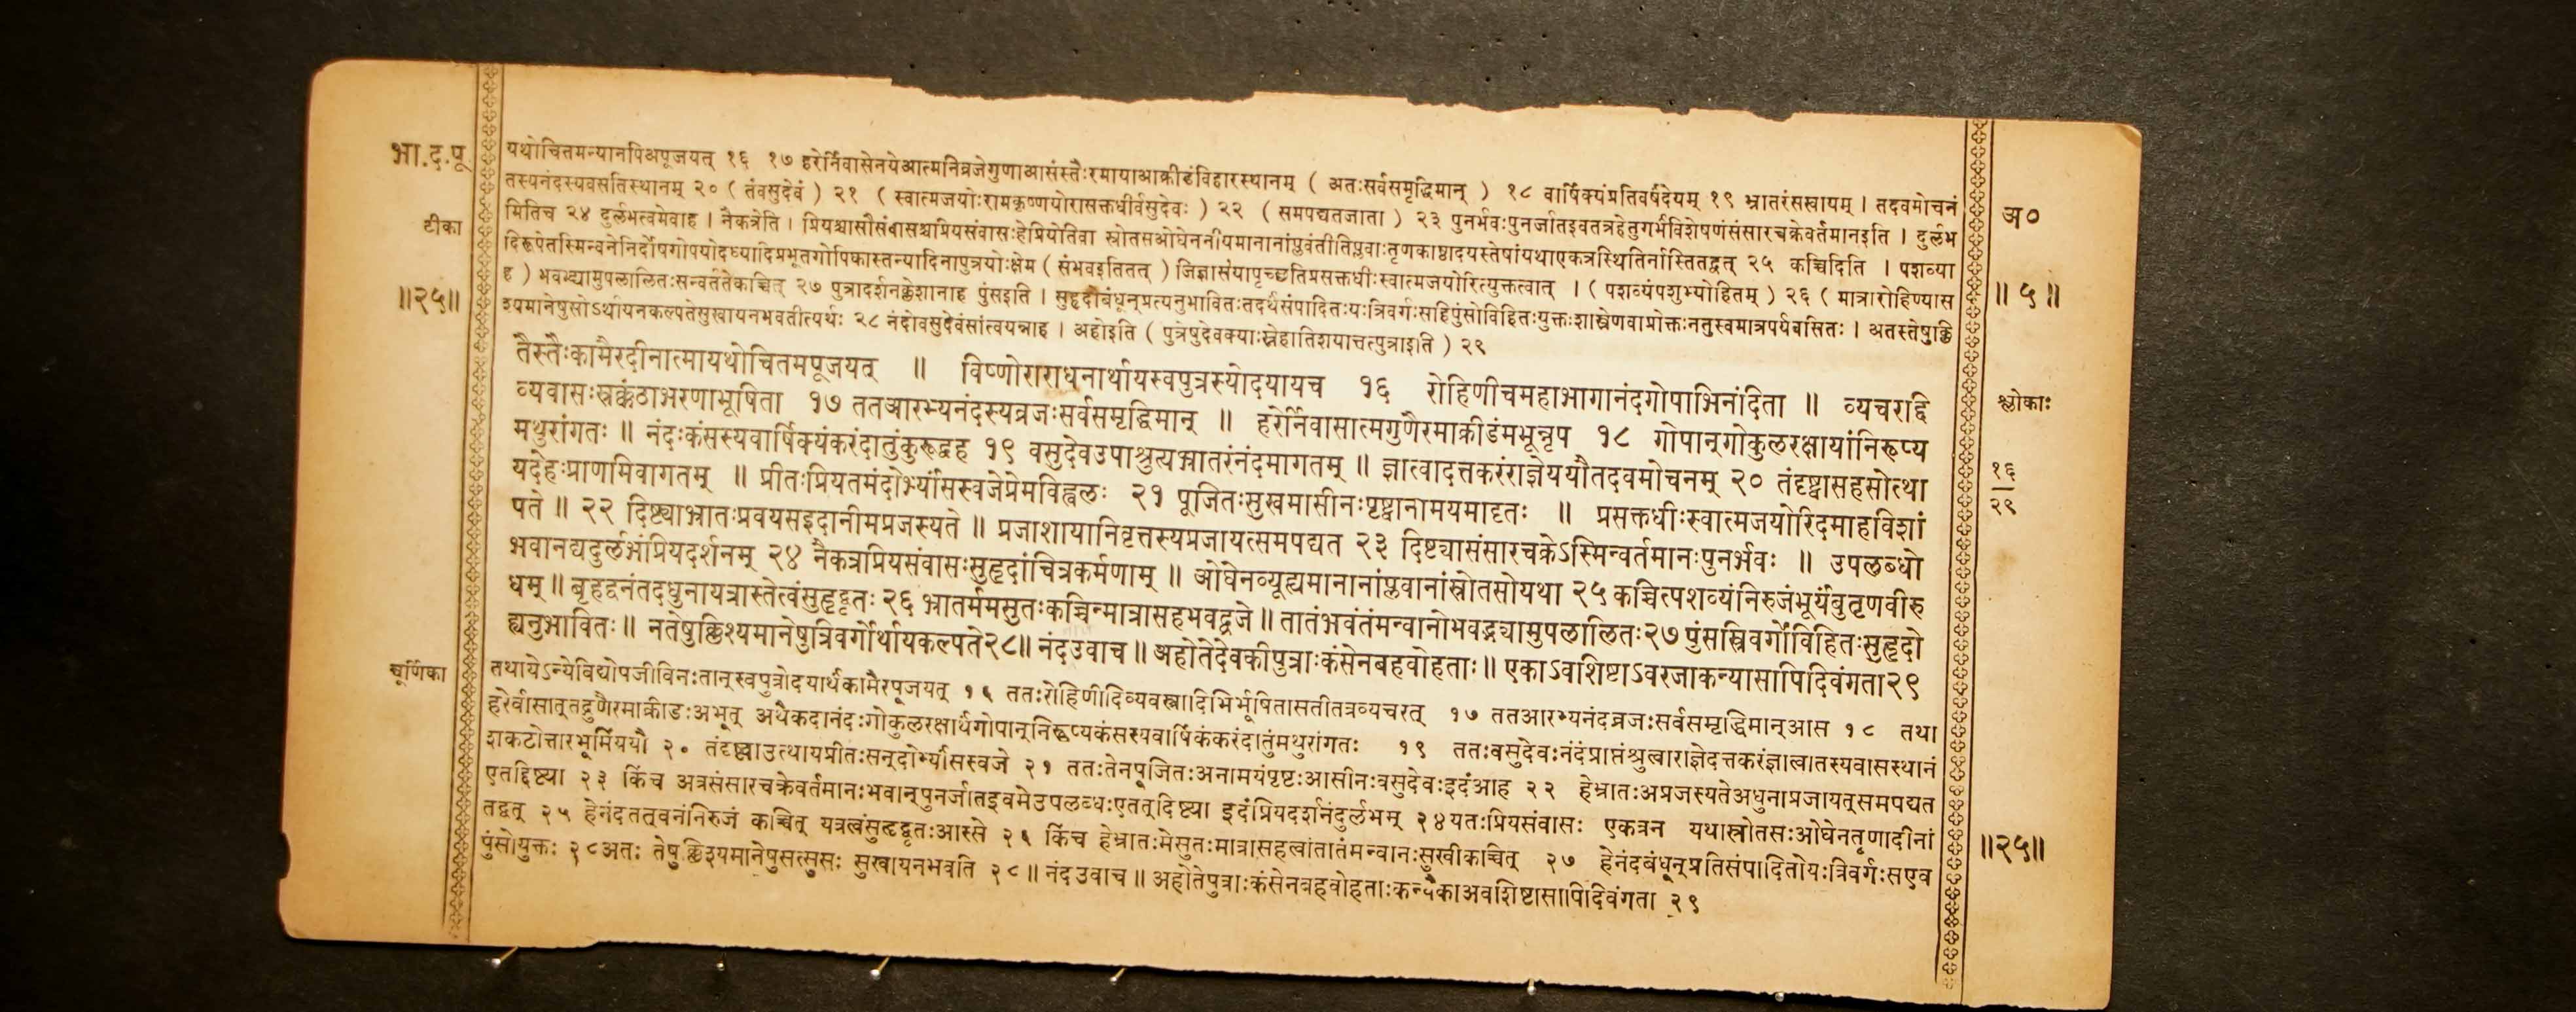 भा.द.पू
टीका
॥२५॥
यथोचितमन्यानपिअपूजयत् १६ १७ हरेर्निवासेनयेआत्मनिव्रजेगुणाआसंस्तैःरमायाआक्रीडंविहारस्थानम् ( अतःसर्वसमृद्धिमान् ) १८ वार्षिक्यंप्रतिवर्षंदेयम् १९ भ्रातरंसखायम् । तदवमोचनं
तस्यनंदस्यवसतिस्थानम् २० ( तंवसुदेवं ) २१ ( स्वात्मजयोःरामकृष्णयोरासक्तधीर्वसुदेवः ) २२ ( समपद्यतजाता ) २३ पुनर्भवःपुनर्जातइवतत्रहेतुगर्भविशेषणंसंसारचक्रेवर्तमानइति । दुर्लभ
मितिच २४ दुर्लभत्वमेवाह । नैकत्रेति । प्रियश्चासौसंवासश्चप्रियसंवासःहेप्रियेतिवा स्रोतसओघेननीयमानानांप्लवंतीतिप्लवाःतृणकाष्ठादयस्तेषांयथाएकत्रस्थितिर्नास्तितद्वत् २५ कच्चिदिति । पशव्या
दिरूपेतस्मिन्वनेनिर्दोषगोपयोदध्यादिप्रभूतगोपिकास्तन्यादिनापुत्रयोःक्षेम ( संभवइतितत् ) जिज्ञासयापृच्छतिप्रसक्तधीःस्वात्मजयोरित्युक्तत्वात् । ( पशव्यंपशुभ्योहितम् ) २६ ( मात्रारोहिण्यास
ह ) भवद्भ्यामुपलालितःसन्वर्ततेकच्चित् २७ पुत्रादर्शनक्लेशानाह पुंसइति । सुहृदोबंधून्प्रत्यनुभावितःतदर्थंसंपादितःयःत्रिवर्गःसहिपुंसोविहितःयुक्तःशास्त्रेणवाप्रोक्तःनतुस्वमात्रपर्यवसितः । अतस्तेषुक्लि
श्यमानेषुसोऽर्थायनकल्पतेसुखायनभवतीत्यर्थः २८ नंदोवसुदेवंसांत्वयन्नाह । अहोइति ( पुत्रेषुदेवक्याःस्नेहातिशयात्तत्पुत्राइति ) २९
तैस्तैःकामैरदीनात्मायथोचितमपूजयत् ॥ विष्णोराराधनार्थायस्वपुत्रस्योदयायच १६ रोहिणीचमहाभागानंदगोपाभिनंदिता ॥ व्यचरद्दि
व्यवासःस्रक्कंठाभरणाभूषिता १७ ततआरभ्यनंदस्यव्रजःसर्वसमृद्धिमान् ॥ हरेर्निवासात्मगुणैरमाक्रीडंमभून्नृप १८ गोपान्गोकुलरक्षायांनिरूप्य
मथुरांगतः ॥ नंदःकंसस्यवार्षिक्यंकरंदातुंकुरूद्वह १९ वसुदेवउपाश्रुत्यभ्रातरंनंदमागतम् ॥ ज्ञात्वादत्तकरंराज्ञेययौतदवमोचनम् २० तंदृष्ट्वासहसोत्था
यदेहःप्राणमिवागतम् ॥ प्रीतःप्रियतमंदोर्भ्यांसस्वजेप्रेमविह्वलः २१ पूजितःसुखमासीनःपृष्ट्वानामयमादृतः ॥ प्रसक्तधीःस्वात्मजयोरिदमाहविशां
पते ॥ २२ दिष्ट्याभ्रातःप्रवयसइदानीमप्रजस्यते ॥ प्रजाशायानिवृत्तस्यप्रजायत्समपद्यत २३ दिष्ट्यासंसारचक्रेऽस्मिन्वर्तमानःपुनर्भवः ॥ उपलब्धो
भवानद्यदुर्लभंप्रियदर्शनम् २४ नैकत्रप्रियसंवासःसुहृदांचित्रकर्मणाम् ॥ ओघेनव्यूह्यमानानांप्लवानांस्रोतसोयथा २५ कच्चित्पशव्यंनिरुजंभूर्यंबुतृणवीरु
धम् ॥ बृहद्वनंतदधुनायत्रास्तेत्वंसुहृद्वृतः २६ भ्रातर्ममसुतःकच्चिन्मात्रासहभवद्व्रजे ॥ तातंभवंतंमन्वानोभवद्भ्यामुपलालितः२७ पुंसस्त्रिवर्गोविहितःसुहृदो
ह्यनुभावितः ॥ नतेषुक्लिश्यमानेषुत्रिवर्गोर्थायकल्पते२८॥ नंदउवाच ॥ अहोतेदेवकीपुत्राःकंसेनबहवोहताः॥ एकाऽवशिष्टाऽवरजाकन्यासापिदिवंगता२९
चूर्णिका
तथायेऽन्येविद्योपजीविनःतान्स्वपुत्रोदयार्थंकामैरपूजयत् १६ ततःरोहिणीदिव्यवस्त्रादिभिर्भूषितासतीतत्रव्यचरत् १७ ततआरभ्यनंदव्रजःसर्वसमृद्धिमान्आस १८ तथा
हरेर्वासात्तद्गुणैरमाक्रीडःअभूत् अथैकदानंदःगोकुलरक्षार्थंगोपान्निरूप्यकंसस्यवार्षिकंकरंदातुंमथुरांगतः १९ ततःवसुदेवःनंदंप्राप्तंश्रुत्वाराज्ञेदत्तकरंज्ञात्वातस्यवासस्थानं
शकटोत्तारभूमिंययौ २० तंदृष्ट्वाउत्थायप्रीतःसन्दोर्भ्यांसस्वजे २१ ततःतेनपूजितःअनामयंपृष्टःआसीनःवसुदेवःइदंआह २२ हेभ्रातःअप्रजस्यतेअधुनाप्रजायत्समपद्यत
एतद्दिष्ट्या २३ किंच अत्रसंसारचक्रेवर्तमानःभवान्पुनर्जातइवमेउपलब्धःएतत्दिष्ट्या इदंप्रियदर्शनंदुर्लभम् २४यतःप्रियसंवासः एकत्रन यथास्रोतसःओघेनतृणादीनां
तद्वत् २५ हेनंदतत्वनंनिरुजं कच्चित् यत्रत्वंसुहृद्वृतःआस्से २६ किंच हेभ्रातःमेसुतःमात्रासहत्वांतातंमन्वानःसुखीकच्चित् २७ हेनंदबंधून्प्रतिसंपादितोयःत्रिवर्गःसएव
पुंसोयुक्तः २८अतः तेषुक्लिश्यमानेषुसत्सुसः सुखायनभवति २८॥ नंदउवाच ॥ अहोतेपुत्राःकंसेनबहवोहताःकन्यैकाअवशिष्टासापिदिवंगता २९
अ०
॥ ५ ॥
श्लोकाः
१६
२९
॥२५॥